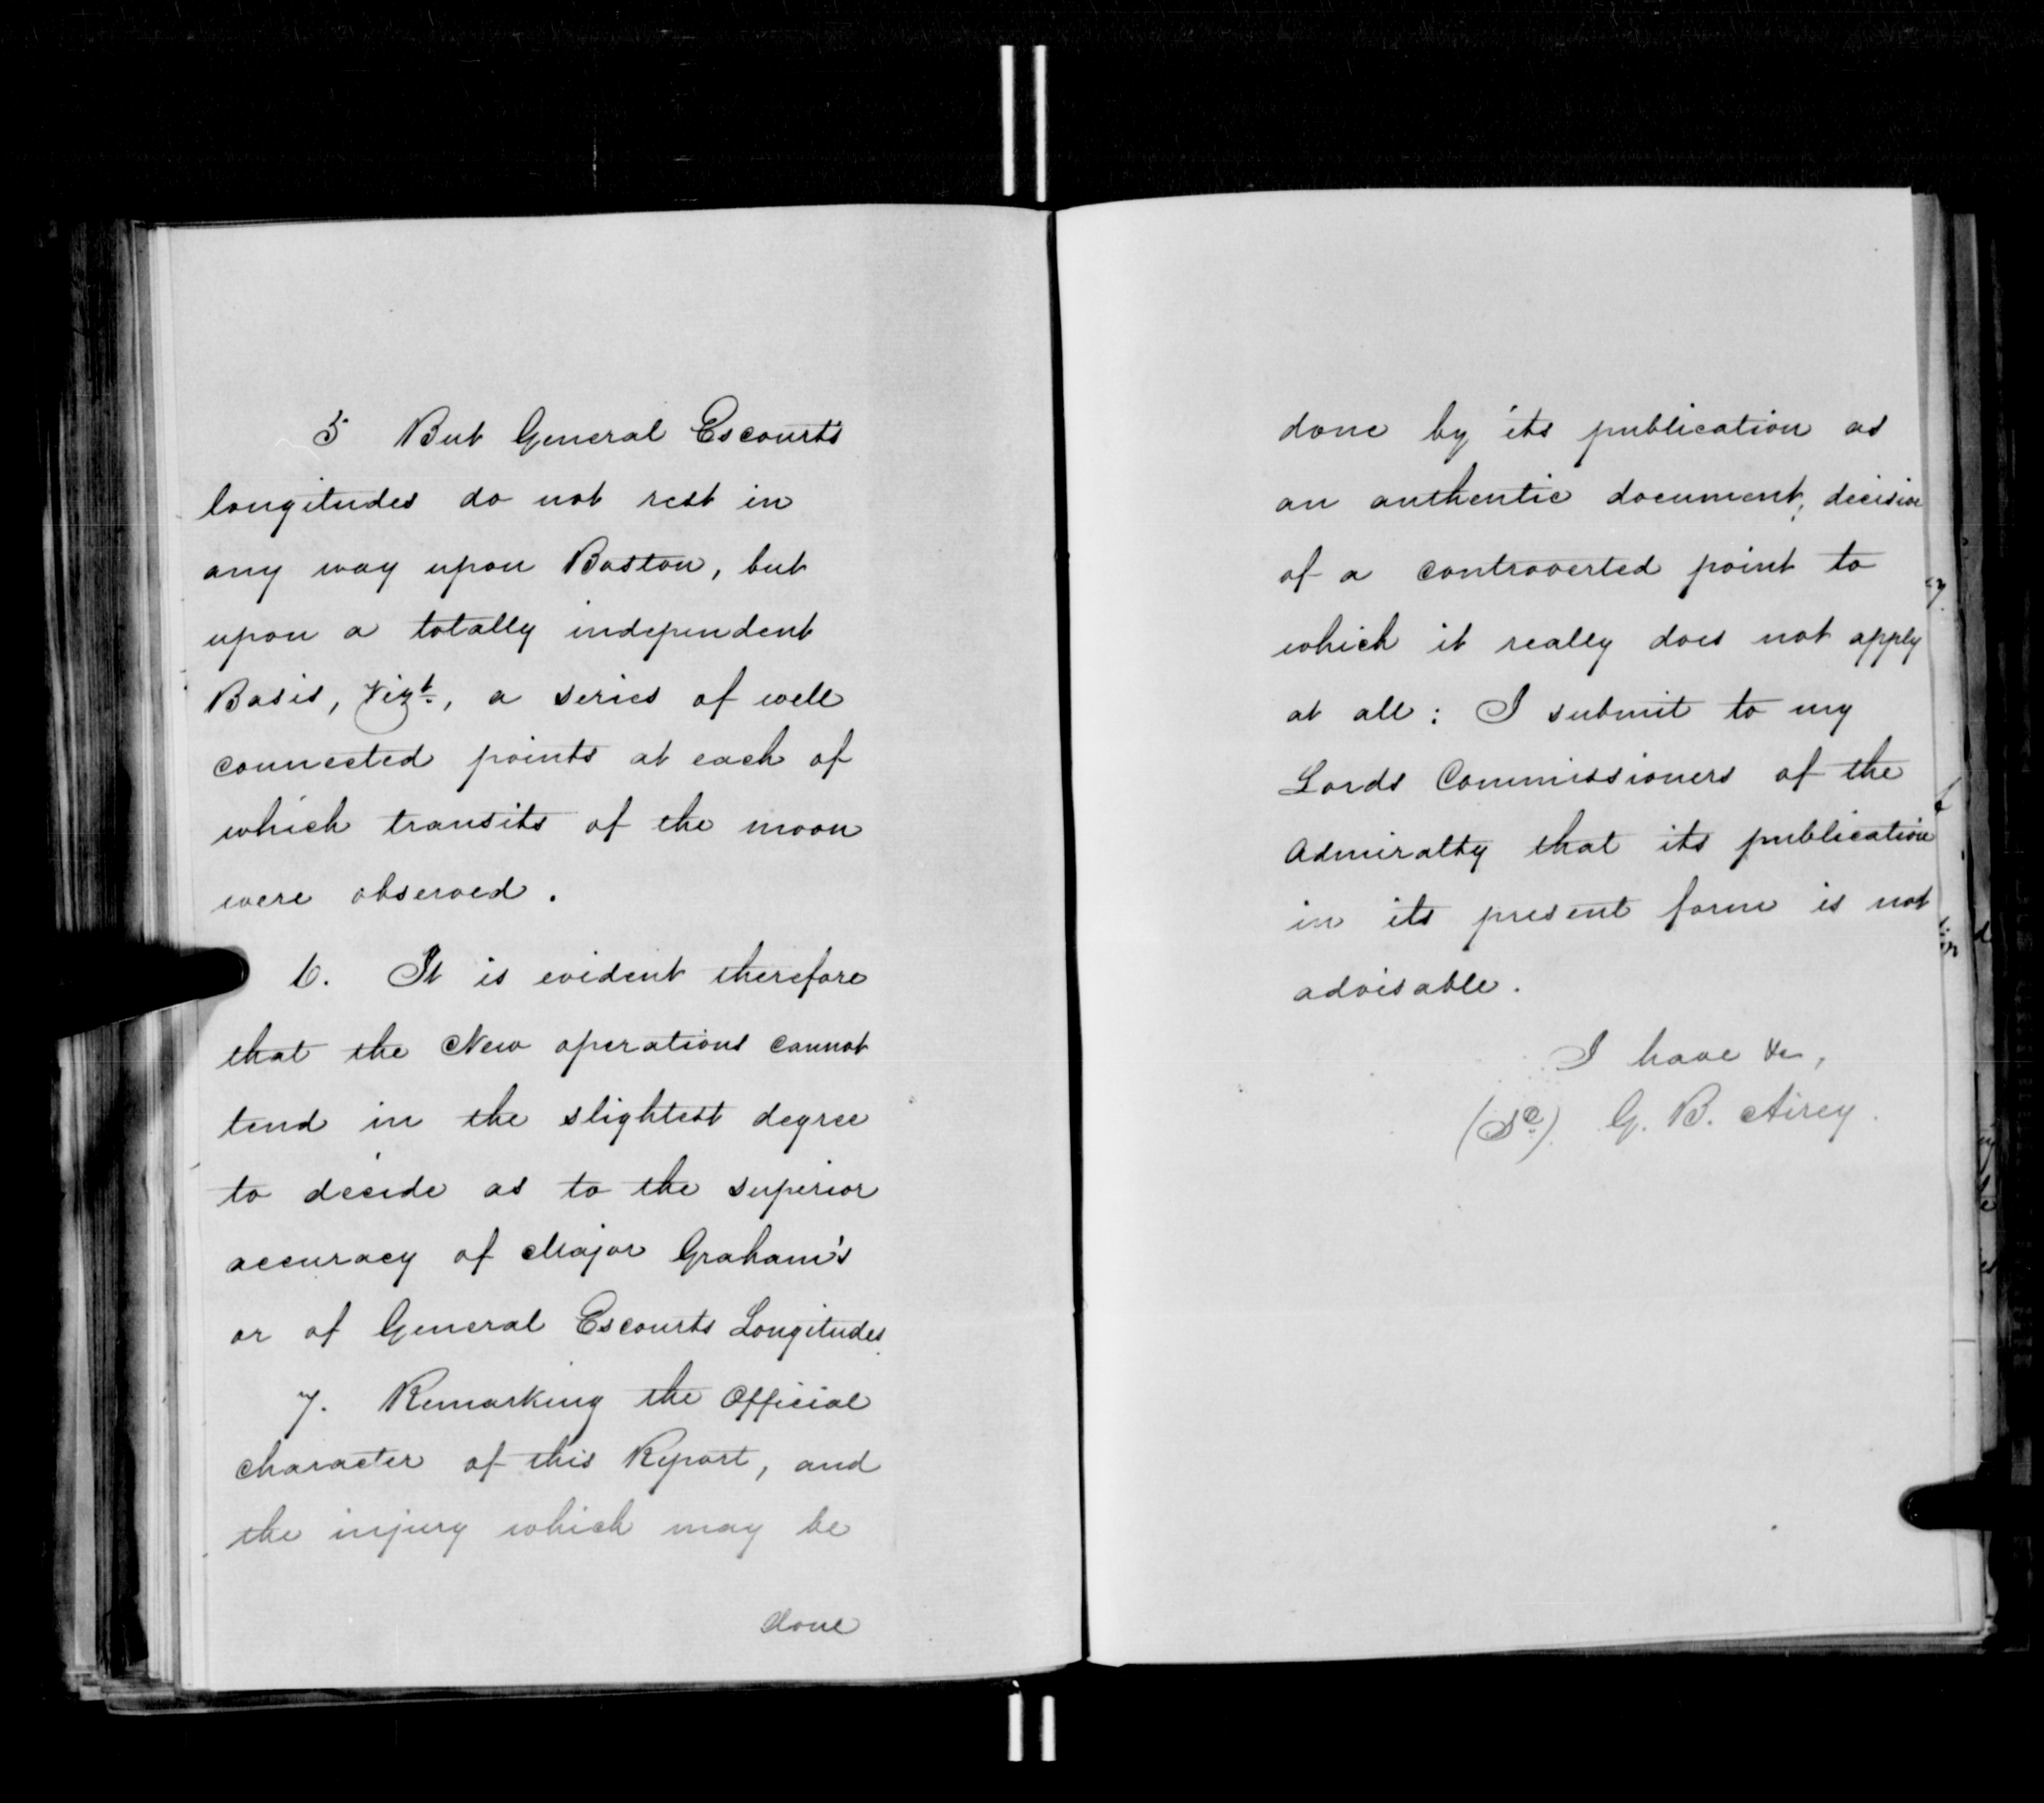 5 But General Escourt's
longitudes do not rest in
any way upon Boston, but
upon a totally independent
Basis, Vizt., a series of well
connected points at each of
which transits of the moon
were observed.
6. It is evident therefore
that the New operations cannot
tend in the slightest degree
to decide as to the superior
accuracy of Major Graham's
or of General Escourts Longitudes.
7. Remarking the Official
character of this Report, and
the injury which may be
done
done by its publication as
an authentic document, decisive
of a controverted point to
which it really does not apply
at all: I submit to my
Lords Commissioners of the
Admiralty that its publication
in its present form is not
advisable.
I have &c,
(Sd.) G. B. Airey.